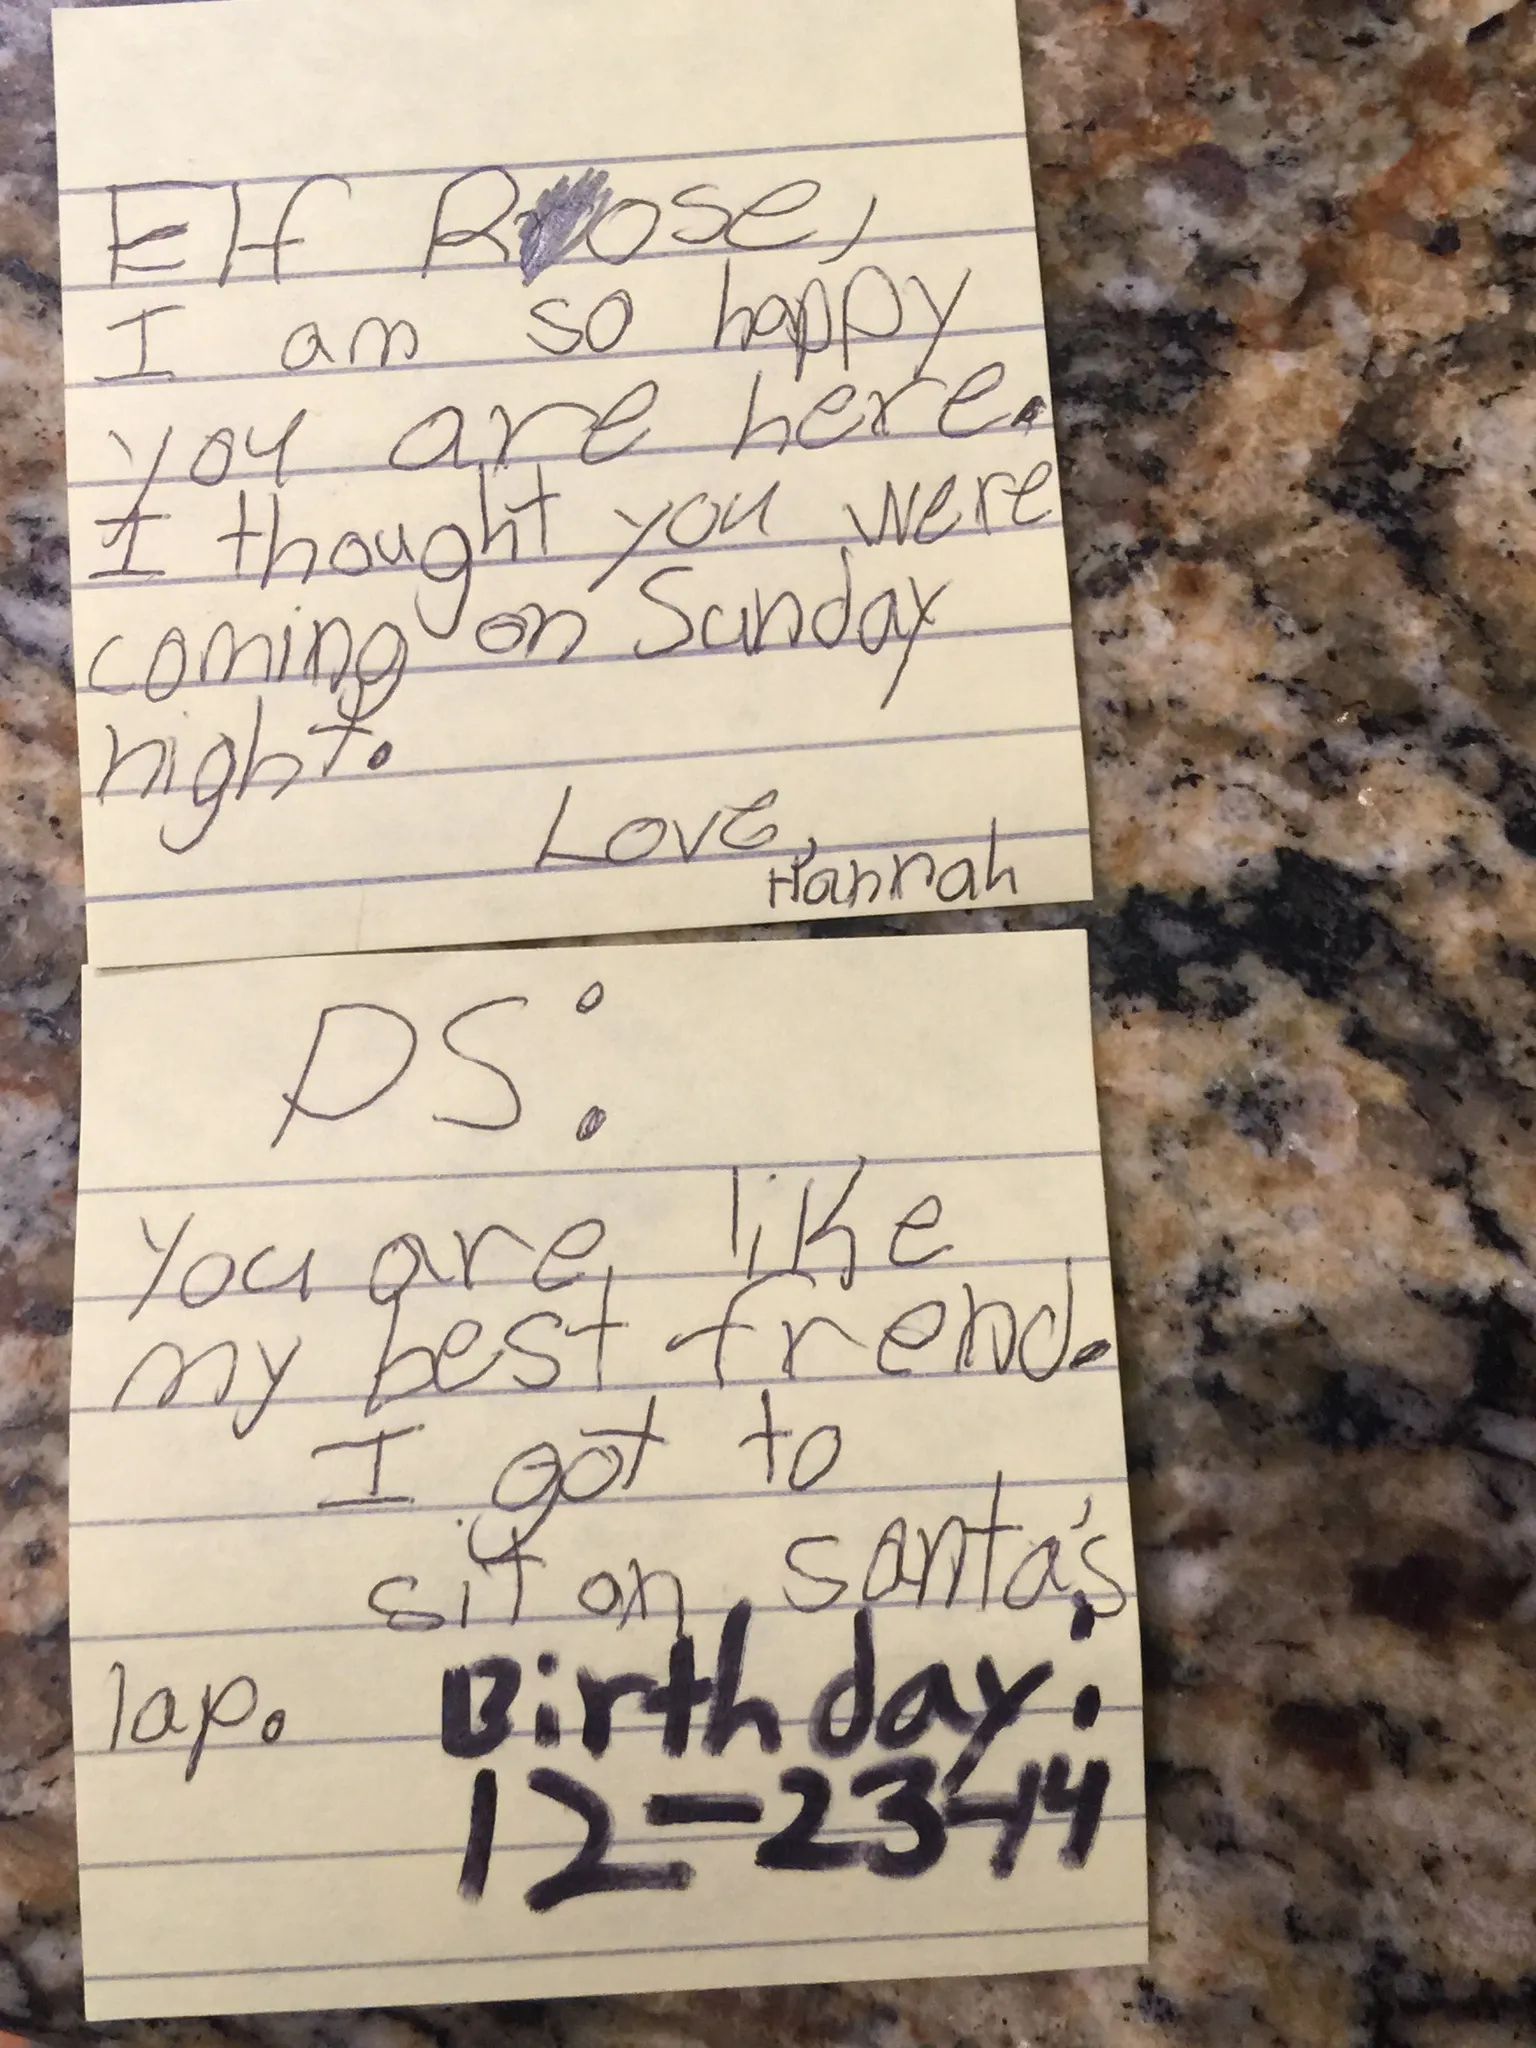 Elf Rose,
I am so happy
you are here.
I thought you were
coming on Sunday
night.
Love,
Hannah
PS:
You are like
my best frend.
I got to
sit on santa's
lap. Birthday:
12-23-14